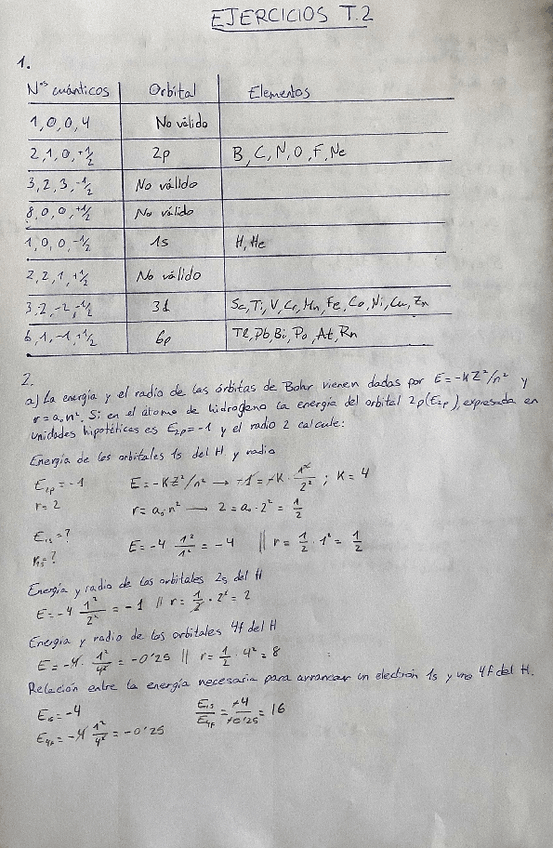 EJERCICIOS T.2
1.
Nos cuánticos Orbital Elementos
1,0,0,4 No válido
2,1,0,+1/2 2p B, C, N, O, F, Ne
3,2,3,-1/2 No válido
8,0,0,+1/2 No válido
1,0,0,-1/2 1s H, He
2,2,1,+1/2 No válido
3,2,-2,-1/2 3d Sc, Ti, V, Cr, Mn, Fe, Co, Ni, Cu, Zn
6,1,-1,+1/2 6p Tl, Pb, Bi, Po, At, Rn
2.
a) La energía y el radio de las órbitas de Bohr vienen dadas por E=-KZ²/n² y
r=a₀n². Si en el átomo de hidrogeno la energía del orbital 2p(E2p), expresada en
unidades hipotéticas es E2p=-1 y el radio 2 calcule:
Energía de los orbitales 1s del H y radio
E2p=-1 E=-KZ²/n² → -1=-K·1²/2² ; K=4
r=2 r=a₀n² → 2=a₀·2² = 1/2
E1s=?
r1s=? E=-4 1²/1² = -4 // r=1/2·1² = 1/2
Energía y radio de los orbitales 2s del H
E=-4 1²/2² = -1 // r=1/2·2²=2
Energía y radio de los orbitales 4f del H
E=-4·1²/4² = -0'25 // r=1/2·4²=8
Relación entre la energía necesaria para arrancar un electrón 1s y uno 4f del H.
E1s=-4 E1s/E4f = -4/-0'25 = 16
E4f=-4 1²/4² = -0'25